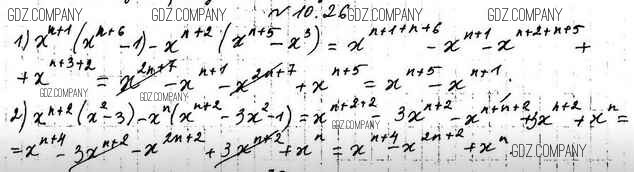 № 10.26
1) x^{n+1}(x^{n+6} - 1) - x^{n+2}(x^{n+5} - x^3) = x^{n+1+n+6} - x^{n+1} - x^{n+2+n+5} +
+ x^{n+3+2} = x^{2n+7} - x^{n+1} - x^{2n+7} + x^{n+5} = x^{n+5} - x^{n+1}.
2) x^{n+2}(x^2 - 3) - x^n(x^{n+2} - 3x^2 - 1) = x^{n+2+2} - 3x^{n+2} - x^{n+n+2} + 3x^{n+2} + x^n =
= x^{n+4} - 3x^{n+2} - x^{2n+2} + 3x^{n+2} + x^n = x^{n+4} - x^{2n+2} + x^n
GDZ.COMPANY
GDZ.COMPANY
GDZ.COMPANY
GDZ.COMPANY
GDZ.COMPANY
GDZ.COMPANY
GDZ.COMPANY
GDZ.COMPANY
GDZ.COMPANY